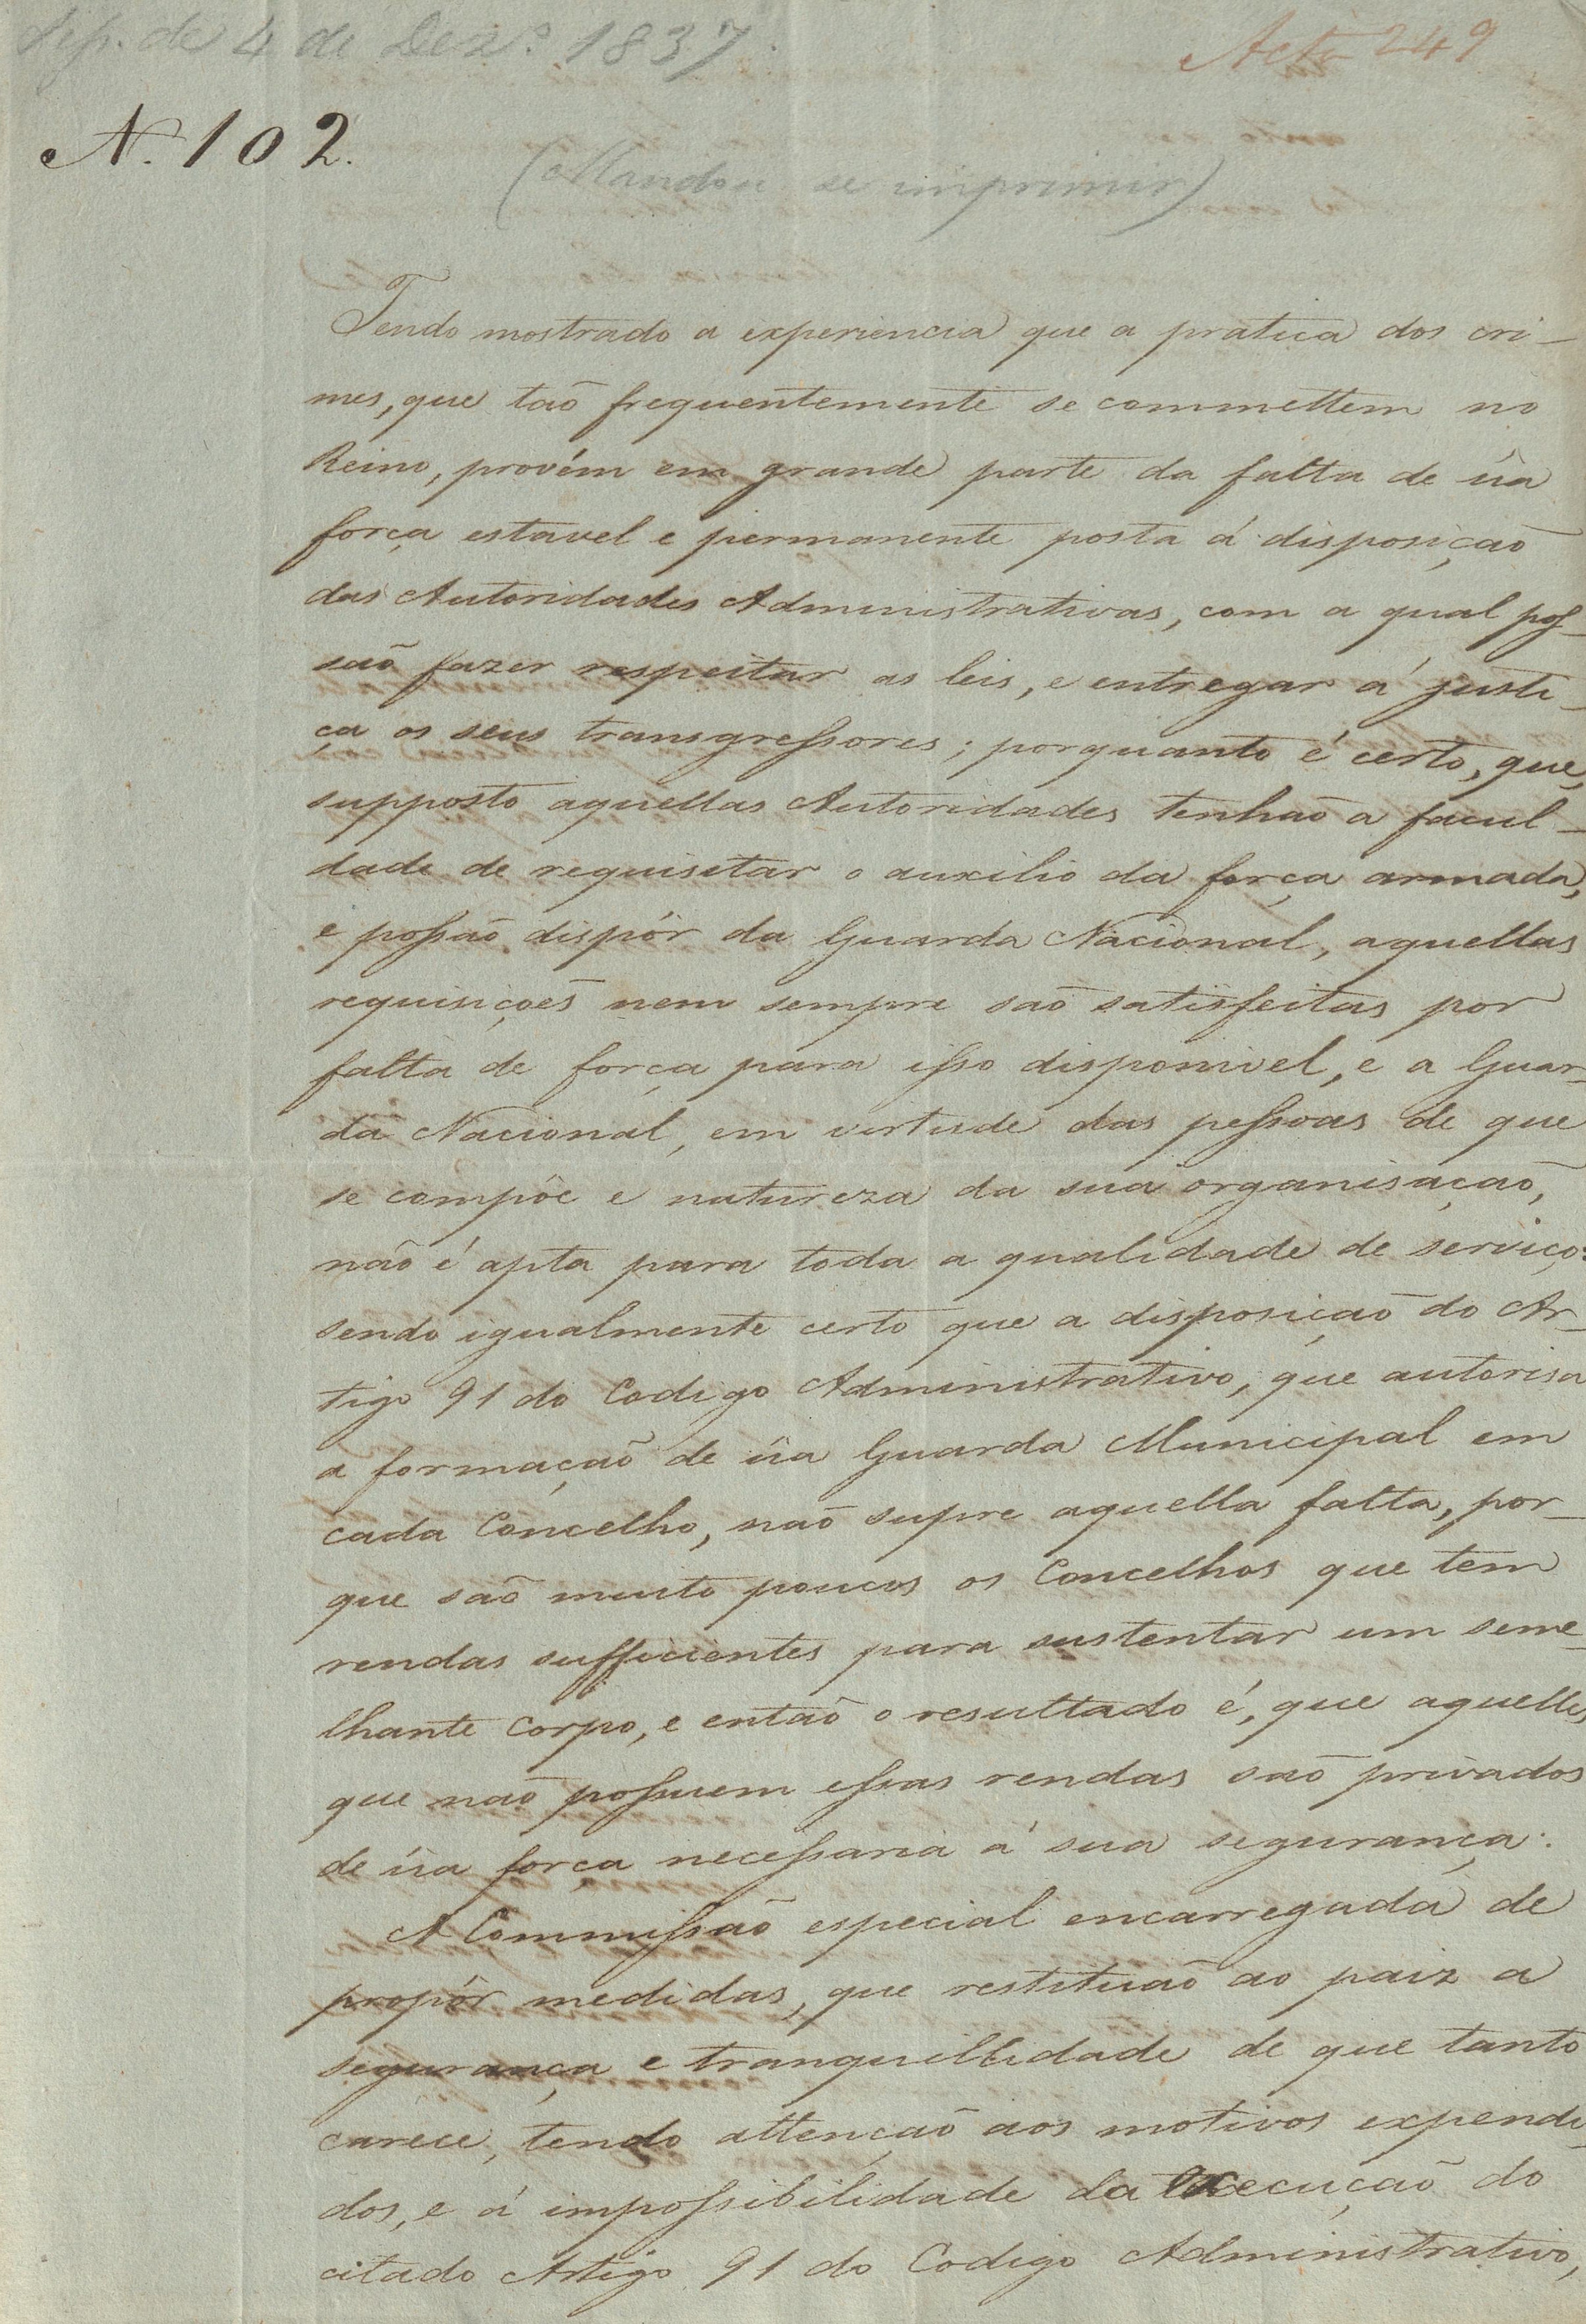 Sep. de 4 de Dezº 1837.
Acta 249
N. 102.
(Mandou se imprimir)
Tendo mostrado a experiencia que a pratica dos cri-
mes, que taõ frequentemente se commettem no
Reino, provém em grande parte da falta de ũa
força estavel e permanente posta á disposiçaõ
das Autoridades Administrativas, com a qual pos-
saõ fazer respeitar as leis, e entregar á justi-
ça os seus transgressores; porquanto é certo, que,
supposto aquellas Autoridades tenhaõ a facul-
dade de requisitar o auxilio da força armada,
e possaõ dispôr da Guarda Nacional, aquellas
requisiçoẽs nem sempre saõ satisfeitas por
falta de força para isso disponivel, e a Guar-
da Nacional, em virtude das pessoas de que
se compõe e natureza da sua organisaçaõ,
não é apta para toda a qualidade de serviço:
sendo igualmente certo que a disposiçaõ do Ar-
tigo 91 do Codigo Administrativo, que autorisa
a formaçaõ de ũa Guarda Municipal em
cada Concelho, naõ supre aquella falta, por-
que saõ muito poucos os Concelhos que tem
rendas sufficientes para sustentar um seme-
lhante Corpo, e entaõ o resultado é, que aquelles
que naõ possuem essas rendas saõ privados
de ũa força necessaria á sua segurança.
A Commissaõ especial encarregada de
propôr medidas, que restituaõ ao paiz a
segurança e tranquillidade de que tanto
carece, tendo attençaõ aos motivos expendi-
dos, e á impossibilidade da execuçaõ do
citado Artigo 91 do Codigo Administrativo,